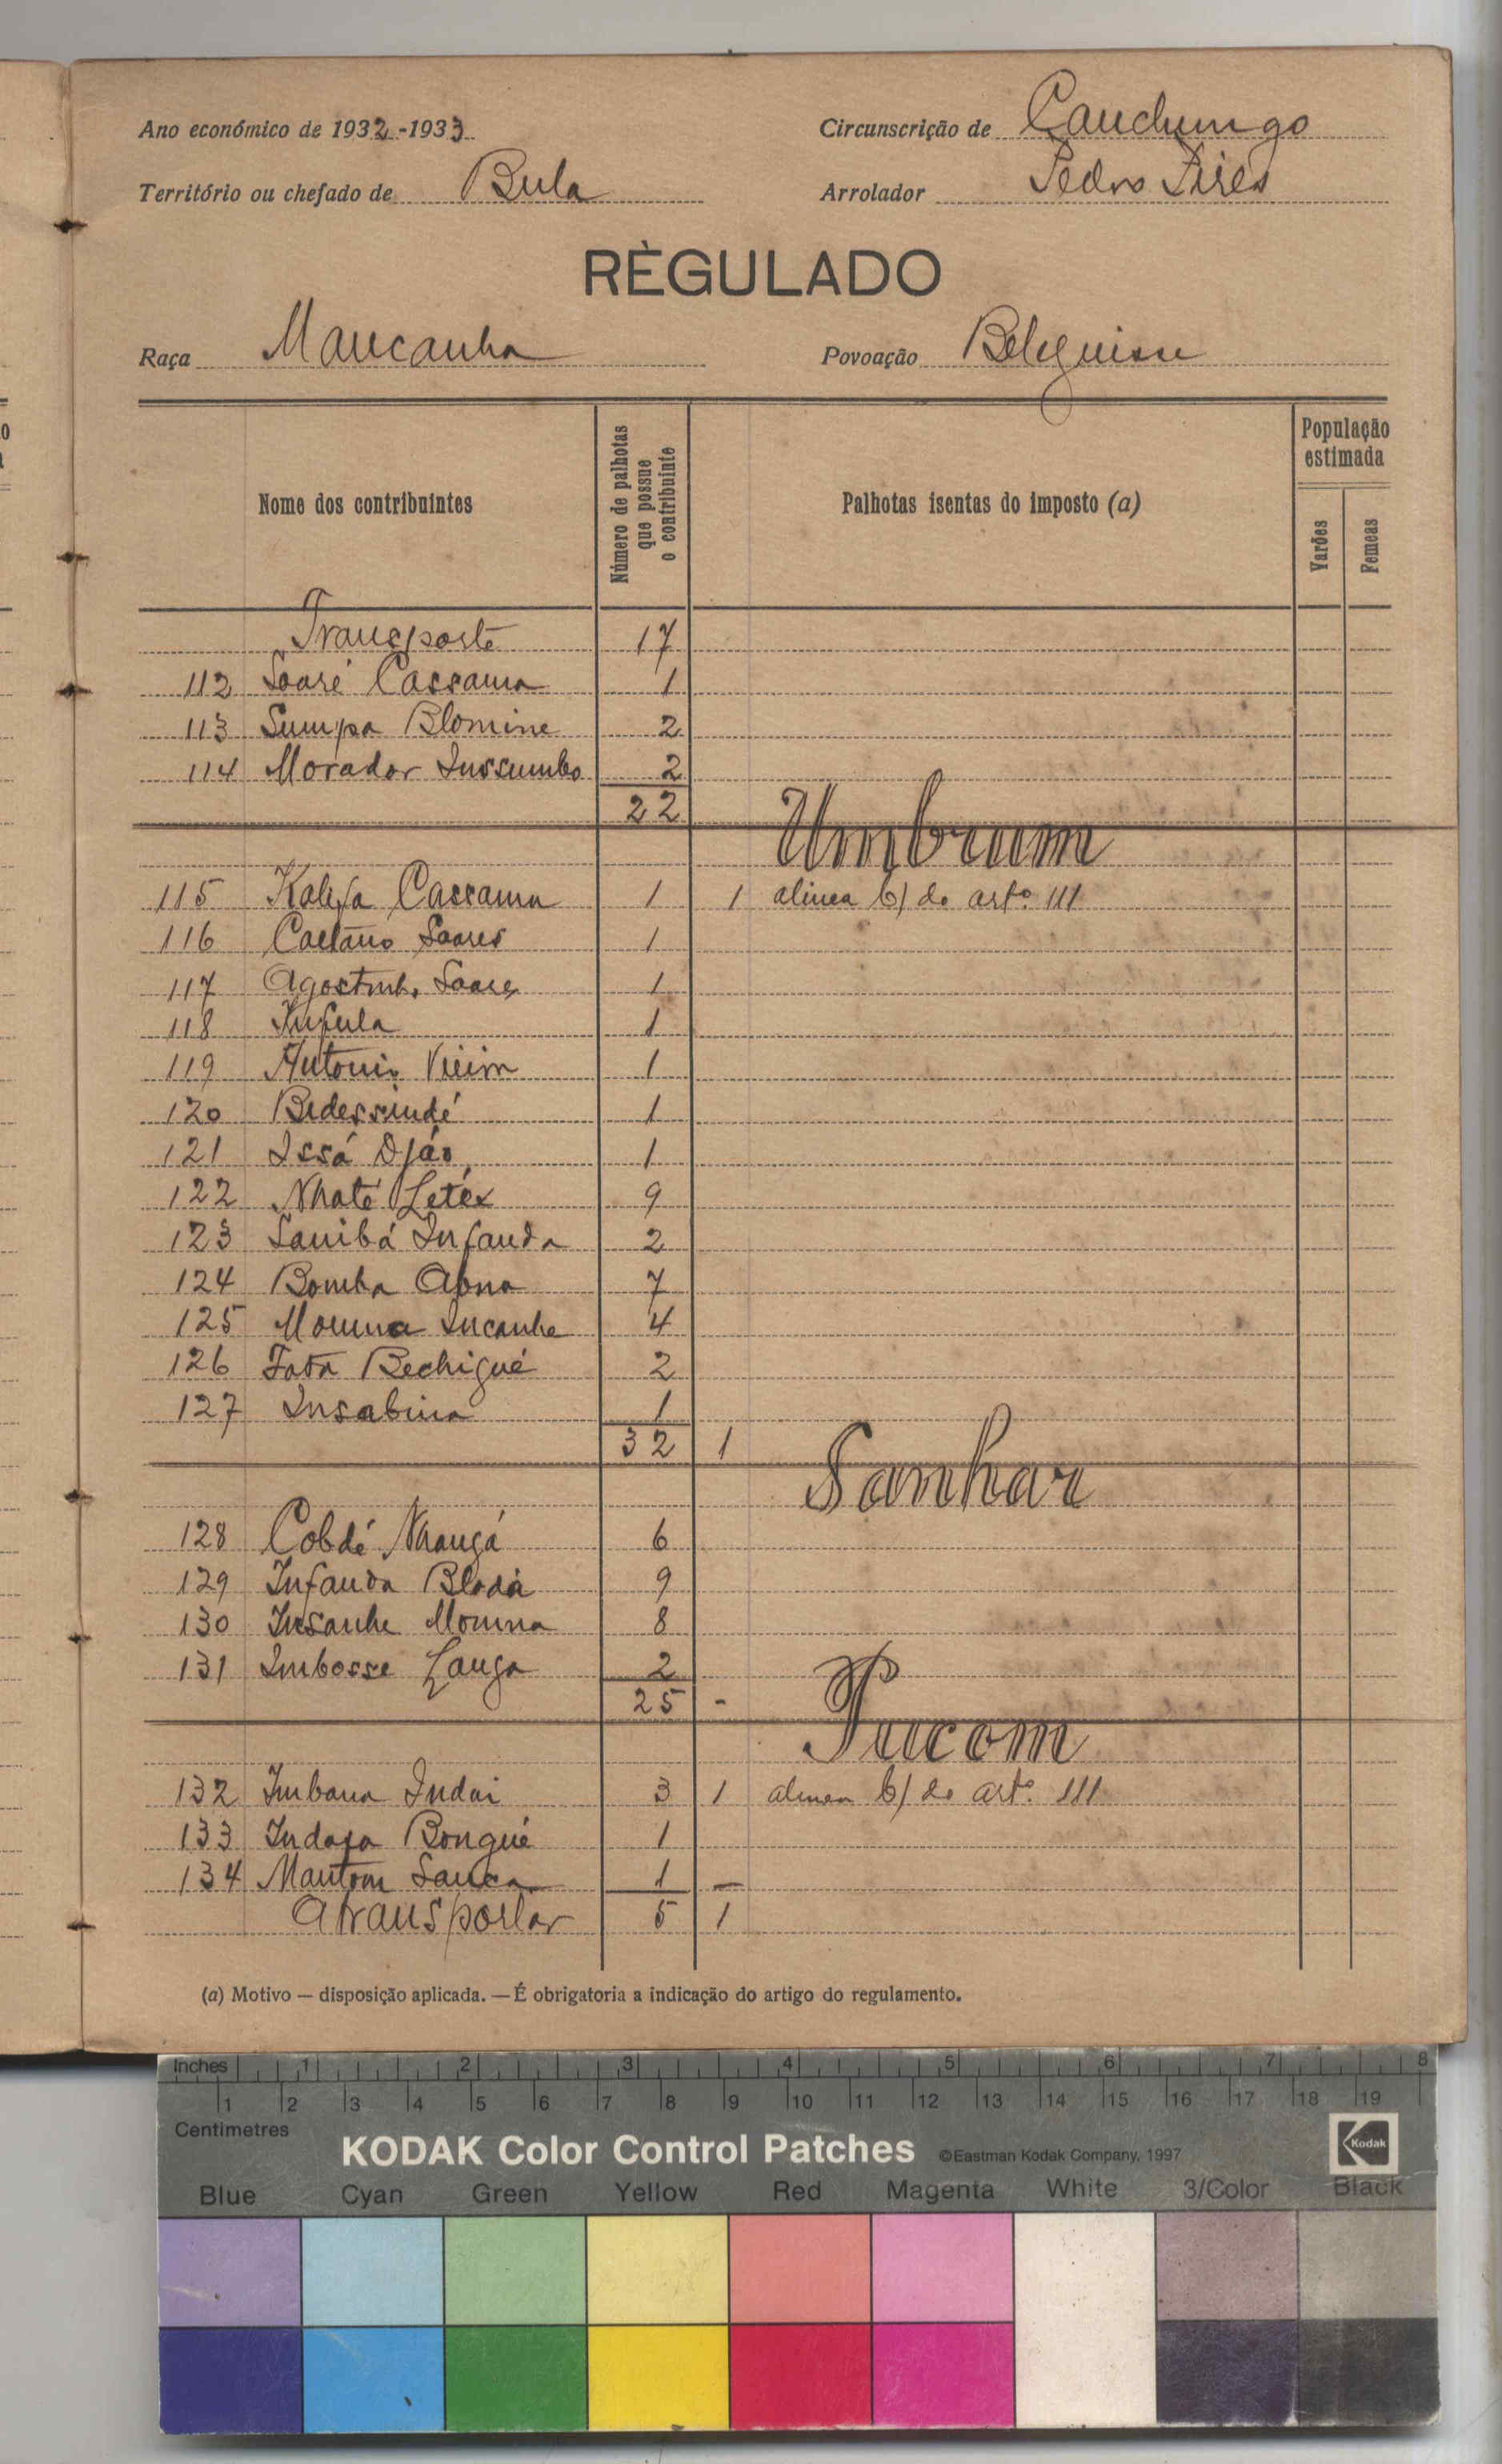 Ano económico de 1932-1933
Circunscrição de Canchungo
Território ou chefado de Bula
Arrolador Pedro Pires
RÈGULADO
Raça Mancanha
Povoação Beleguisse
Nome dos contribuintes
Número de palhotas que possue o contribuinte
Palhotas isentas do imposto (a)
População estimada
Varões
Femeas
Transporte 17
112 Soaré Cassama 1
113 Sumpa Blomine 2
114 Morador Inssumbo 2
22
Umbrum
115 Kalifa Cassama 1 1 alinea b) do artº 111
116 Caetano Soares 1
117 Agostinho Soares 1
118 Infula 1
119 Antonio Vieira 1
120 Bedessindé 1
121 Issá Djáo 1
122 Nhaté Letex 9
123 Sanibá Infanda 2
124 Bomba Abna 7
125 Momna Incanha 4
126 Fata Bechigué 2
127 Insabina 1
32 1
Sanhar
128 Cobdé Nhangá 6
129 Infanda Bladà 9
130 Insanhe Momna 8
131 Imbosse Langa 2
25 -
Pucom
132 Imbana Indai 3 1 alinea b) do artº 111
133 Indafa Bongué 1
134 Mantom Sanca 1 —
A transportar 5 1
(a) Motivo — disposição aplicada. — É obrigatoria a indicação do artigo do regulamento.
Inches 1 2 3 4 5 6 7 8
1 2 3 4 5 6 7 8 9 10 11 12 13 14 15 16 17 18 19
Centimetres
KODAK Color Control Patches ©Eastman Kodak Company, 1997 Kodak
Blue Cyan Green Yellow Red Magenta White 3/Color Black